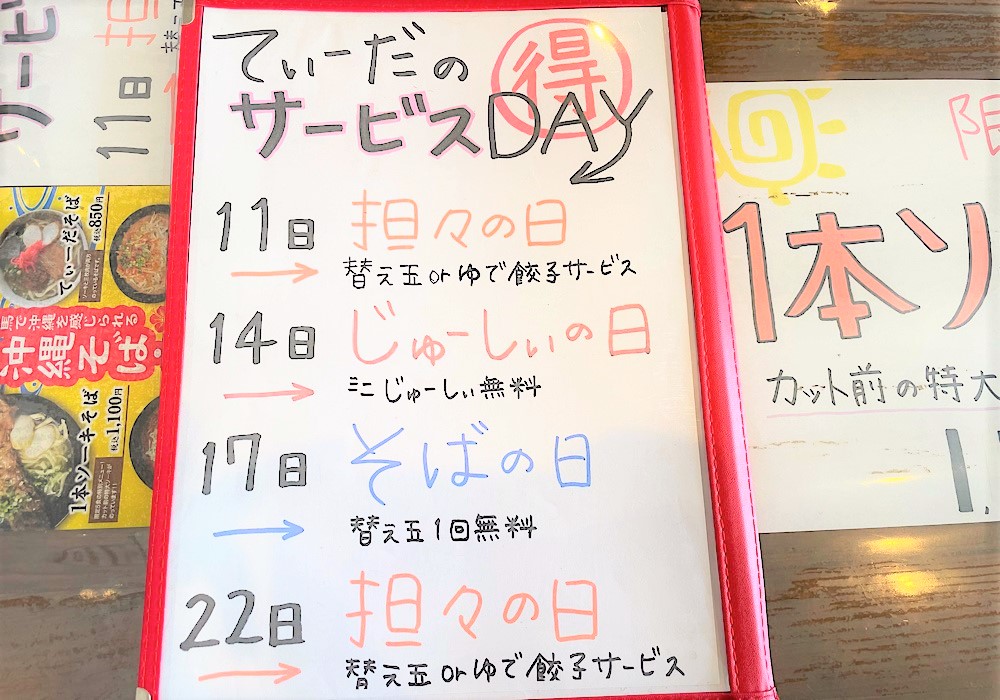 てぃーだの
得
サービスDAY
11日 担々の日
替え玉orゆで餃子サービス
14日 じゅーしぃの日
ミニじゅーしぃ無料
17日 そばの日
替え玉1回無料
22日 担々の日
替え玉orゆで餃子サービス
サービ
11日
てぃーだそば
税込850円
馬で沖縄を感じられる
沖縄そば
1本ソーキそば
税込1,100円
限
1本ソ
カット前の特大
1,